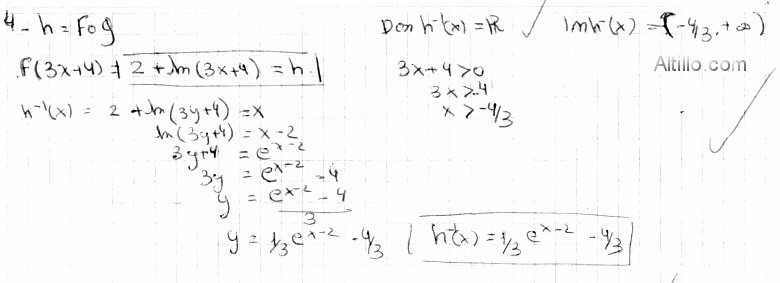 4 - h = Fog
Dom h⁻¹(x) = ℝ ✓
Im h⁻¹(x) = (-4/3, +∞)
F(3x+4) = 2 + ln(3x+4) = h
3x+4 > 0
Altillo.com
3x > -4
x > -4/3
h⁻¹(x) = 2 + ln(3y+4) = x
ln(3y+4) = x-2
3y+4 = e^x-2
3y = e^x-2 - 4
y = e^x-2 - 4 / 3
y = 1/3 e^x-2 - 4/3 | h⁻¹(x) = 1/3 e^x-2 - 4/3